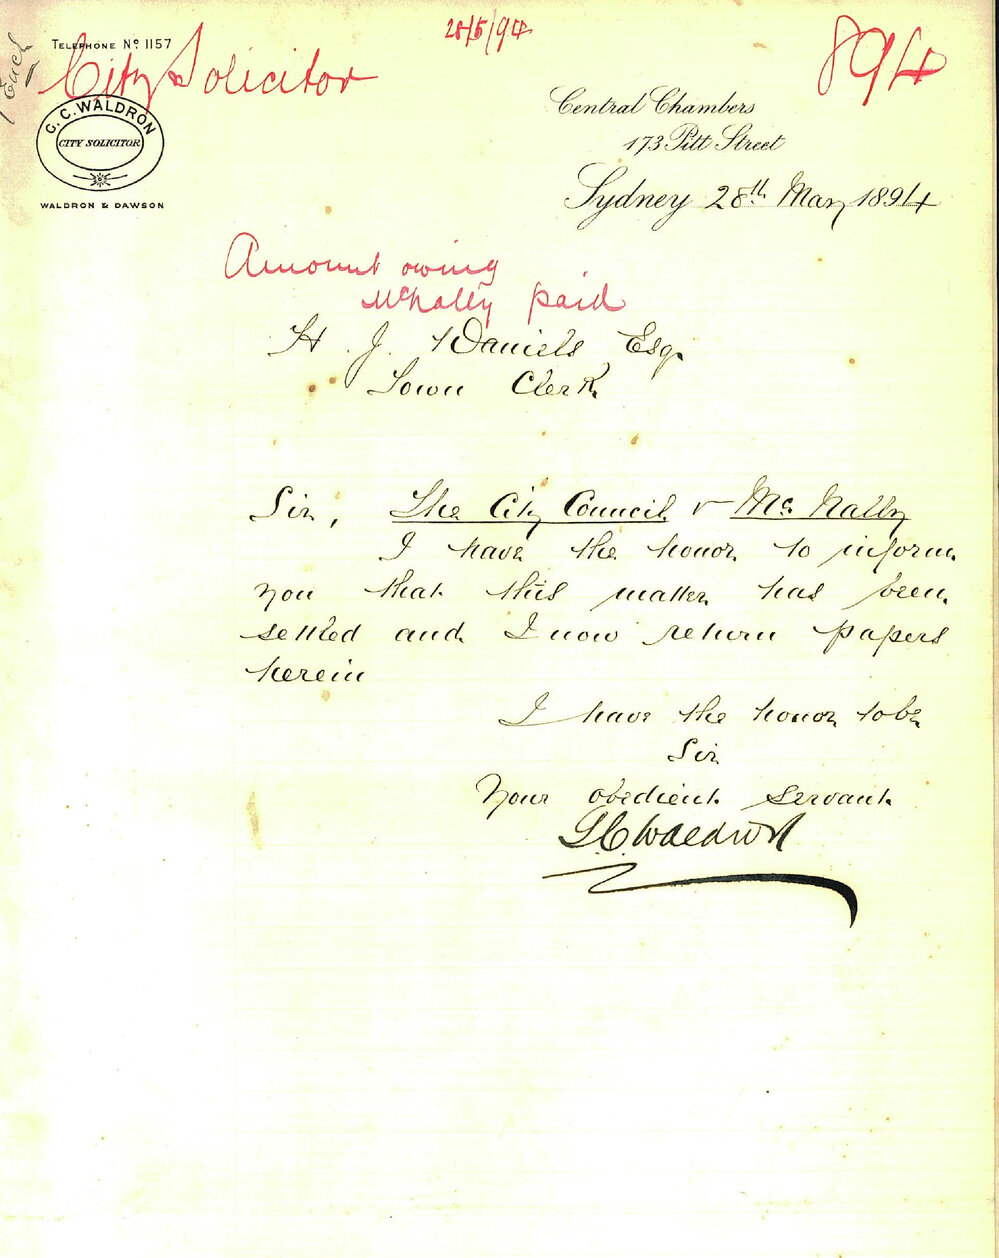 28/5/94
894
Encl
TELEPHONE No 1157
City Solicitor
G. C. WALDRON
CITY SOLICITOR
WALDRON & DAWSON
Central Chambers
173 Pitt Street
Sydney 28th May 1894
Amount owing
McNally paid
H. J. Daniels Esq.
Town Clerk
Sir, The City Council v McNally
I have the honor to inform
you that this matter has been
settled and I now return papers
herein
I have the honor to be
Sir
Your obedient servant
G. C. Waldron